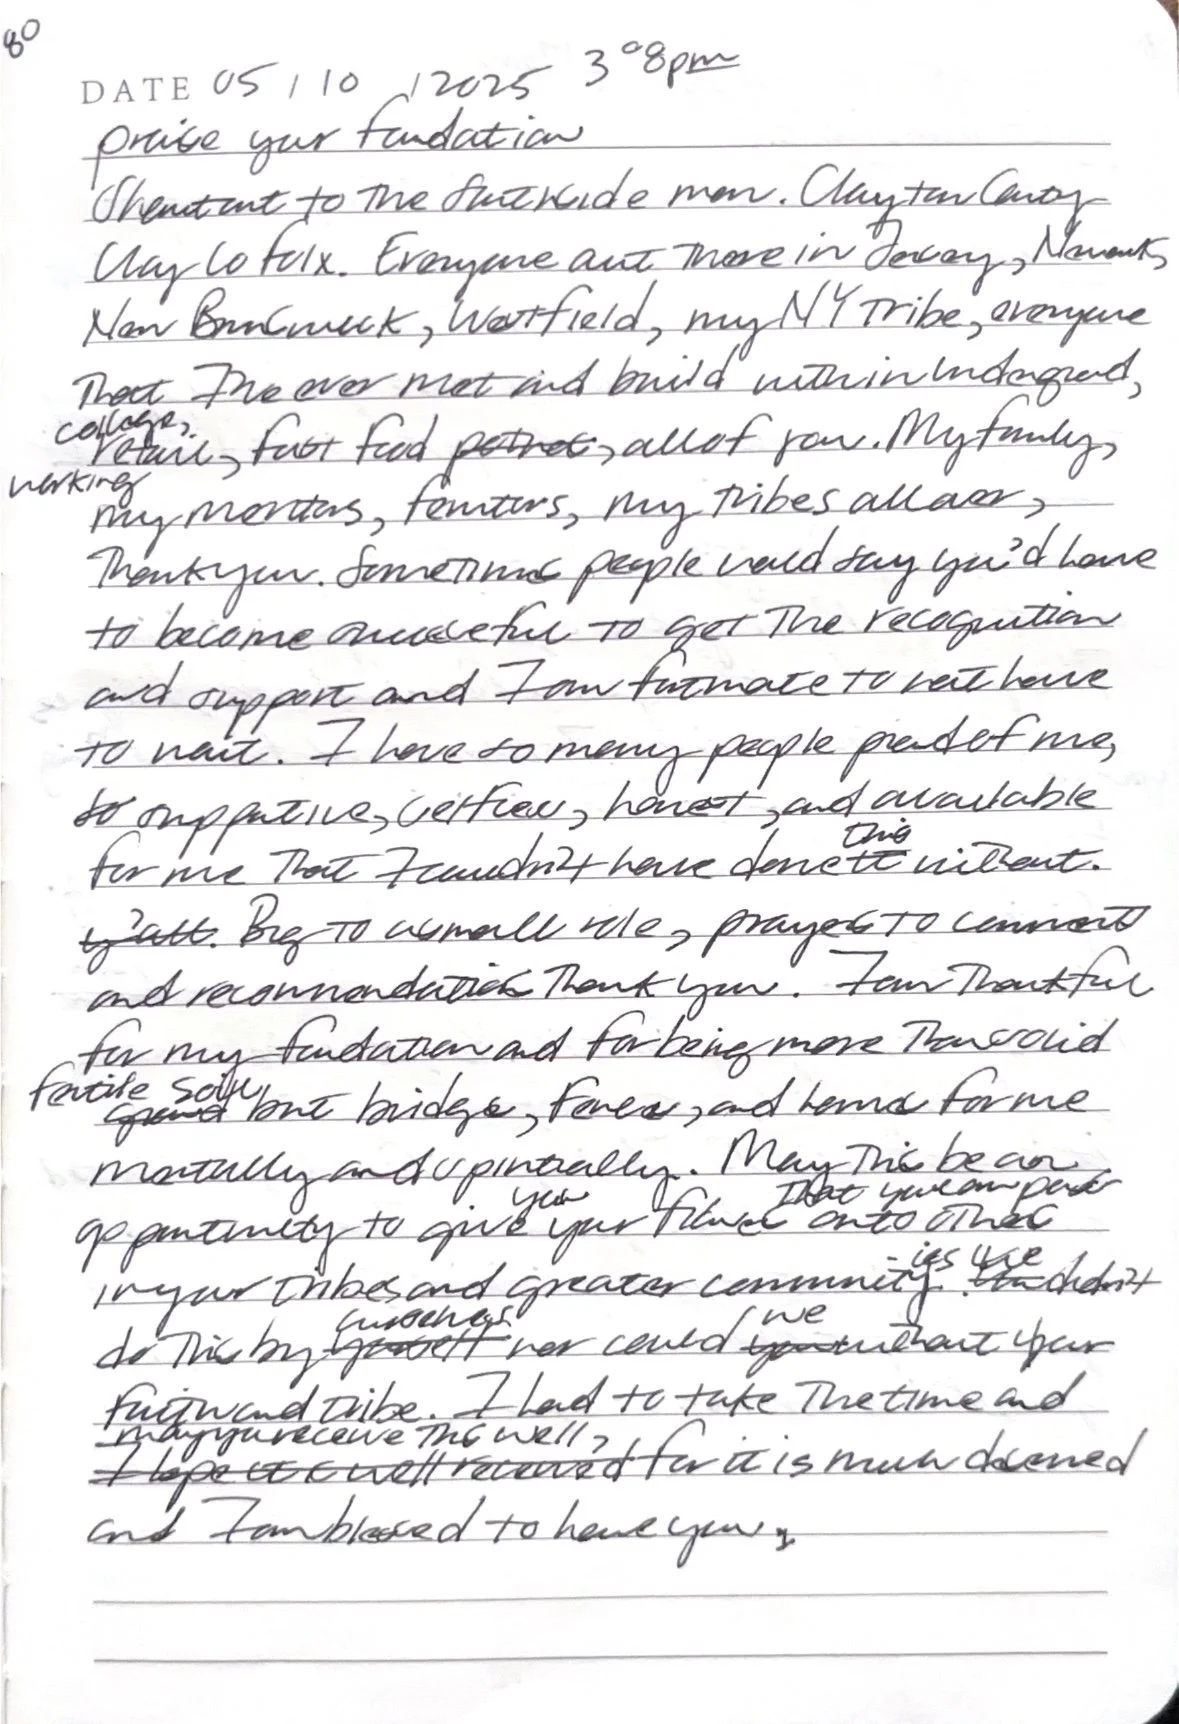 80
DATE 05/10/2025 3:08pm
praise your foundation
Shoutout to the Southside man. Clayton County
Clay Co folx. Everyone out there in Jersey, Newark,
New Brunswick, Westfield, my NY Tribe, everyone
That I've ever met and build with in undergrad,
college,
retail, fast food, all of you. My family,
working
my mentors, my tribes all over,
Thank you. Sometimes people would say you'd have
to become successful to get the recognition
and support and I am fortunate to not have
to wait. I have so many people proud of me,
so supportive, selfless, honest, and available
this
for me that I couldn't have done it without.
y'all. Big to a small role, prayers to connects
and recommendations Thank you. I am Thankful
for my foundation and for being more than solid
fertile soil
ground but bridges, fences, and homes for me
mentally and spiritually. May this be an
you that you can pass
opportunity to give your flowers onto others
in your tribes and greater community. didn't
ies we
ourselves we
do this by yourself nor could you without your
faith and tribe. I had to take the time and
may you receive this well,
I hope it is well received for it is much deserved
and I am blessed to have you.